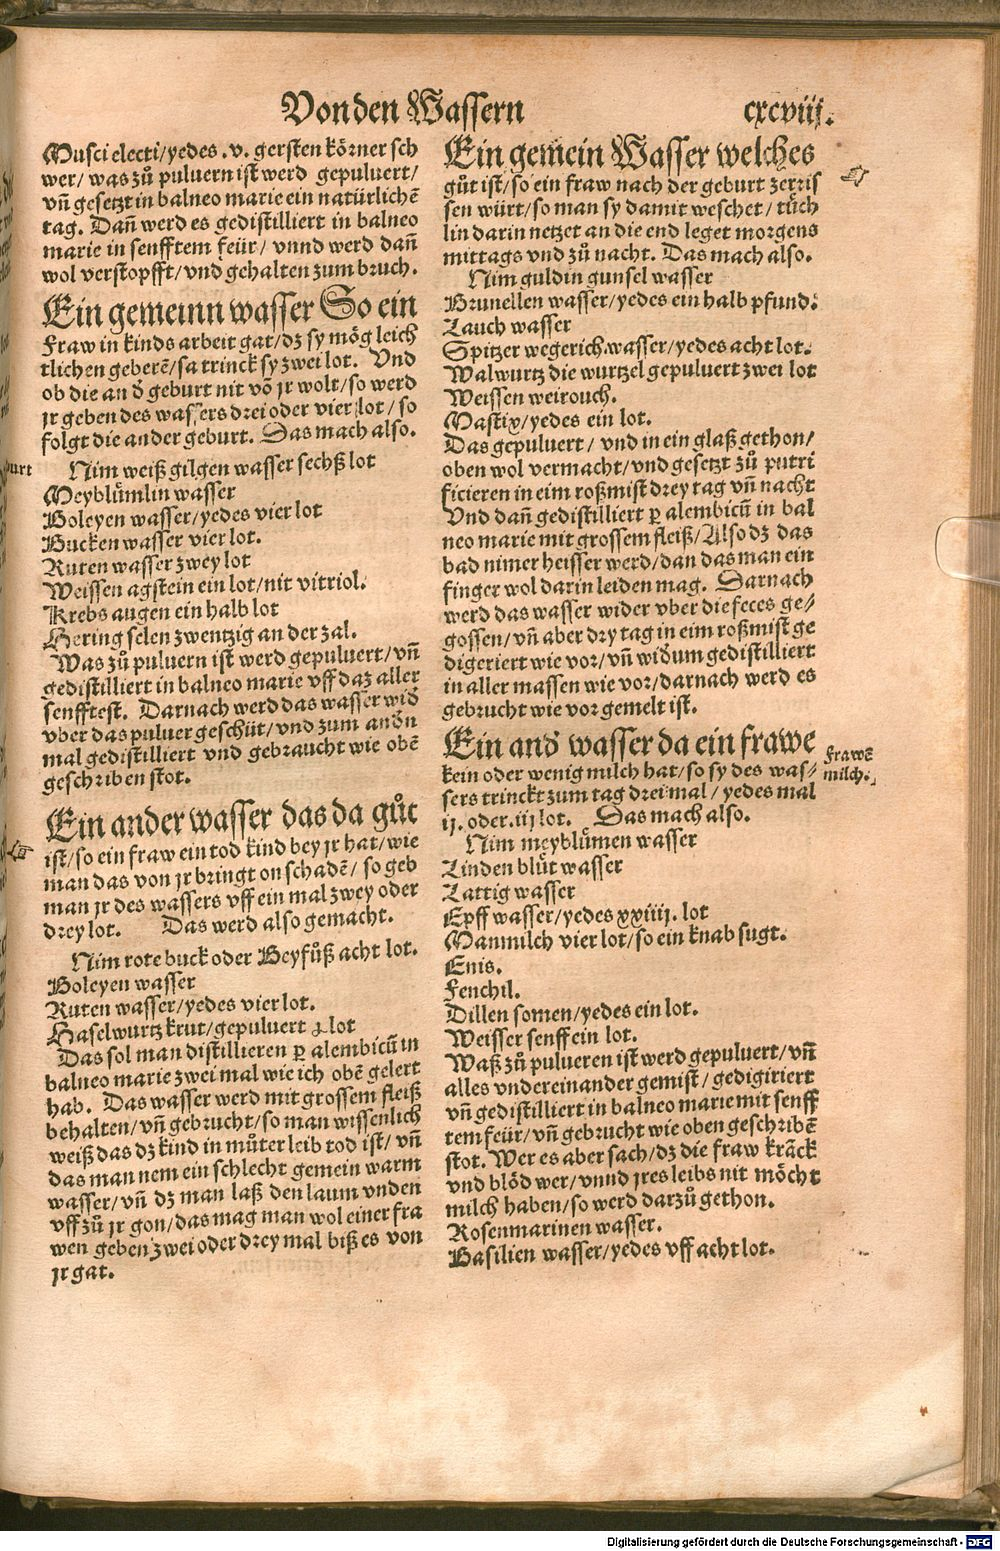 Von den Wassern
cxcviij.
Musci electi/yedes .v. gersten körner sch
wer/was zů puluern ist werd gepuluert/
vñ gesetzt in balneo marie ein natürlichẽ
tag. Dañ werd es gedistilliert in balneo
marie in senfftem feür/vnnd werd dañ
wol verstopfft/vnd gehalten zum bruch.
Ein gemeinn wasser So ein
Fraw in kinds arbeit gat/dz sy mög leich
tlichen geberẽ/sa trinck sy zwei lot. Vnd
ob die an ð geburt nit võ jr wolt/so werd
jr geben des wassers drei oder vier lot/so
folgt die ander geburt. Das mach also.
burt
Nim weiß gilgen wasser sechß lot
Meyblümlin wasser
Boleyen wasser/yedes vier lot
Bucken wasser vier lot.
Ruten wasser zwey lot
Weissen agstein ein lot/nit vitriol.
Krebs augen ein halb lot
Hering selen zwentzig an der zal.
Was zů puluern ist werd gepuluert/vñ
gedistilliert in balneo marie vff daz aller
senfftest. Darnach werd das wasser wið
vber das puluer geschüt/vnd zum andñ
mal gedistilliert vnd gebraucht wie obẽ
geschriben stot.
Ein ander wasser das da gůt
ist/so ein fraw ein tod kind bey jr hat/wie
man das von jr bringt on schadẽ/so geb
man jr des wassers vff ein mal zwey oder
drey lot. Das werd also gemacht.
Nim rote buck oder Beyfůß acht lot.
Boleyen wasser
Ruten wasser/yedes vier lot.
Haselwurtz krut/gepuluert lot
Das sol man distillieren ꝑ alembicũ in
balneo marie zwei mal wie ich obẽ gelert
hab. Das wasser werd mit grossem fleiß
behalten/vñ gebrucht/so man wissenlich
weiß das dz kind in můter leib tod ist/vñ
das man nem ein schlecht gemein warm
wasser/vñ dz man laß den laum vnden
vff zů jr gon/das mag man wol einer fra
wen geben zwei oder drey mal biß es von
jr gat.
Ein gemein Wasser welches
gůt ist/so ein fraw nach der geburt zerris
sen würt/so man sy damit weschet/tůch
lin darin netzet an die end leget morgens
mittags vnd zů nacht. Das mach also.
Nim guldin gunsel wasser
Brunellen wasser/yedes ein halb pfund.
Lauch wasser
Spitzer wegerich.wasser/yedes acht lot.
Walwurtz die wurtzel gepuluert zwei lot
Weissen weirouch.
Mastix/yedes ein lot.
Das gepuluert/vnd in ein glaß gethon/
oben wol vermacht/vnd gesetzt zů putri
ficieren in eim roßmist drey tag vñ nacht
Vnd dañ gedistilliert ꝑ alembicũ in bal
neo marie mit grossem fleiß/Also dz das
bad nimer heisser werd/dan das man ein
finger wol darin leiden mag. Darnach
werd das wasser wider vber die feces ge⸗
gossen/vñ aber dry tag in eim roßmist ge
digeriert wie vor/vñ widum gedistilliert
in aller massen wie vor/darnach werd es
gebrucht wie vor gemelt ist.
Ein anð wasser da ein frawe
kein oder wenig milch hat/so sy des was⸗
sers trinckt zum tag drei mal/yedes mal
ij. oder .iij lot. Das mach also.
Frawẽ
milch.
Nim meyblůmen wasser
Linden blůt wasser
Lattig wasser
Epff wasser/yedes xxiiij. lot
Manmilch vier lot/so ein knab sugt.
Enis.
Fenchil.
Dillen somen/yedes ein lot.
Weisser senff ein lot.
Waß zů pulueren ist werd gepuluert/vñ
alles vndereinander gemist/gedigiriert
vñ gedistilliert in balneo marie mit senff
tem feür/vñ gebrucht wie oben geschribẽ
stot. Wer es aber sach/dz die fraw krãck
vnd blöd wer/vnnd jres leibs nit möcht
milch haben/so werd darzů gethon.
Rosenmarinen wasser.
Basilien wasser/yedes vff acht lot.
Digitalisierung gefördert durch die Deutsche Forschungsgemeinschaft - DFG